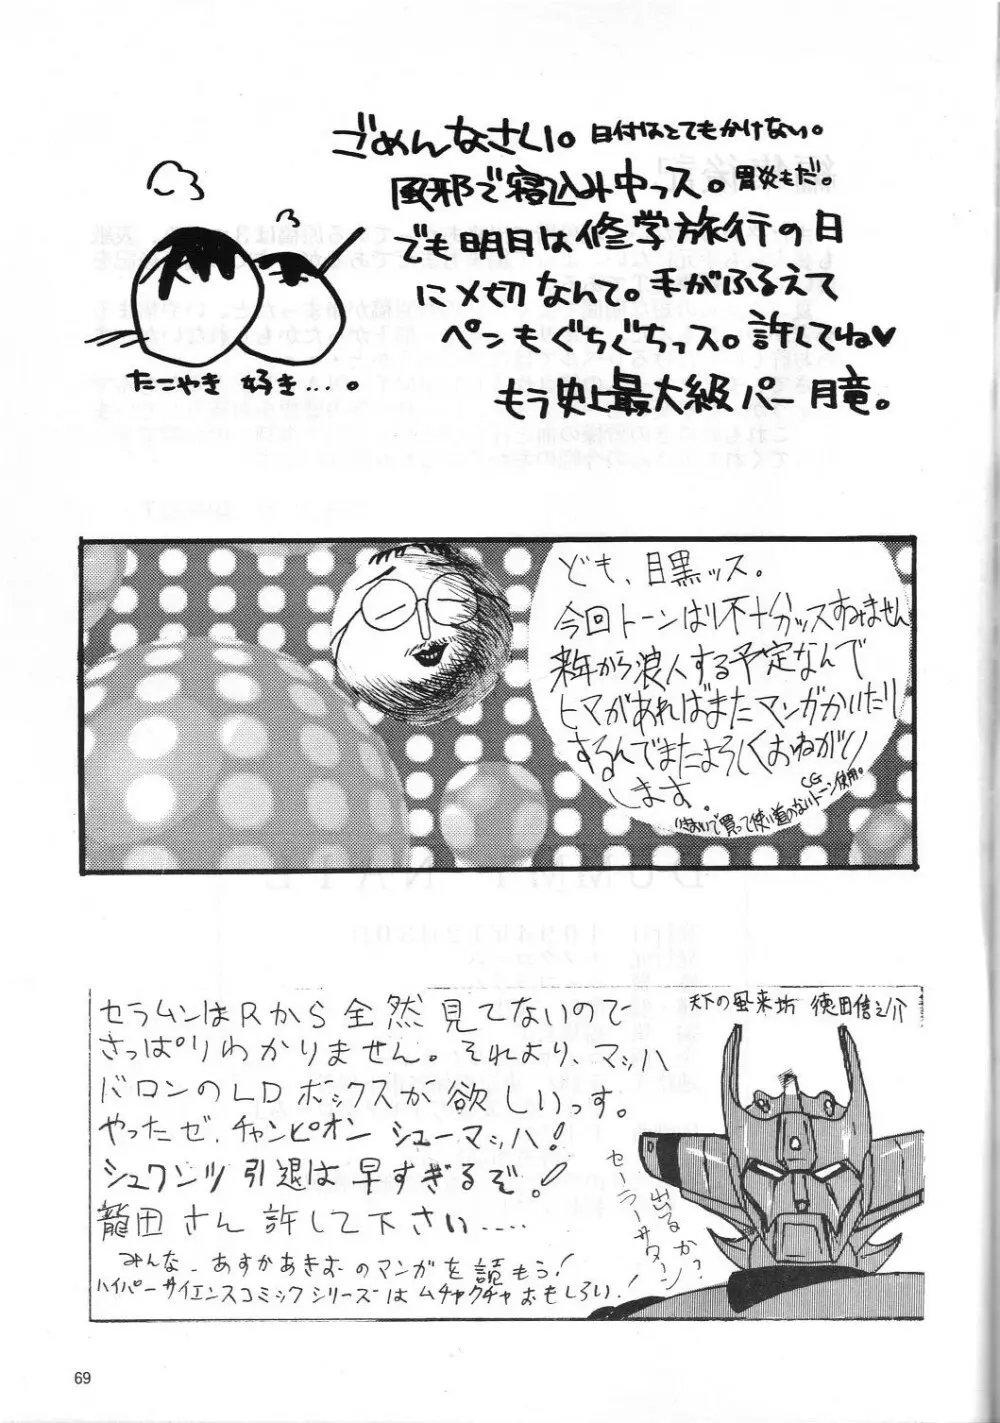 ごめんなさい。日付はとてもかけない。
風邪で寝込み中っス。胃炎もだ。
でも明日は修学旅行の日
に〆切なんて。手がふるえて
ペンもぐちぐちっス。許してね♥
もう史上最大級パー 月竜。
たこやき 好き…。
ども、目黒ッス。
今回トーンは不十分ッスすみません
来年から浪人する予定なんで
ヒマがあればまたマンガかいたり
するんでまたよろしくおねがい
します。
CG
いきおいで買って使い道のないトーン使用。
セラムンはRから全然見てないので
さっぱりわかりません。それより、マッハ
バロンのLDボックスが欲しいっす。
やったゼ、チャンピオン シューマッハ!
シュワンツ引退は早すぎるぞ!
龍田さん許して下さい……
みんな、あすかあきおのマンガを読もう!
ハイパーサイエンスコミックシリーズはムチャクチャおもしろい!
天下の風来坊 徳田信之介
セーラーサターン
出るかっ?
69